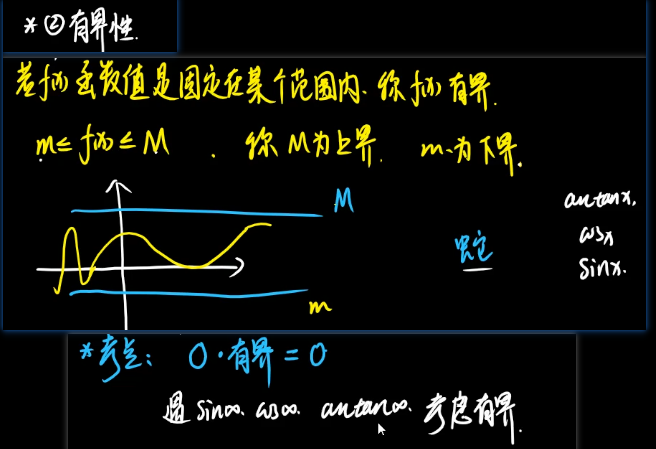 * ② 有界性.
若f(x)函数值是固定在某个范围内、称f(x)有界.
m≤ f(x) ≤ M . 称 M为上界. m为下界.
M
arctanx.
蛇
cosx
sinx.
m
*考点: 0·有界=0
遇 sin∞. cos∞. arctan∞. 考虑有界.